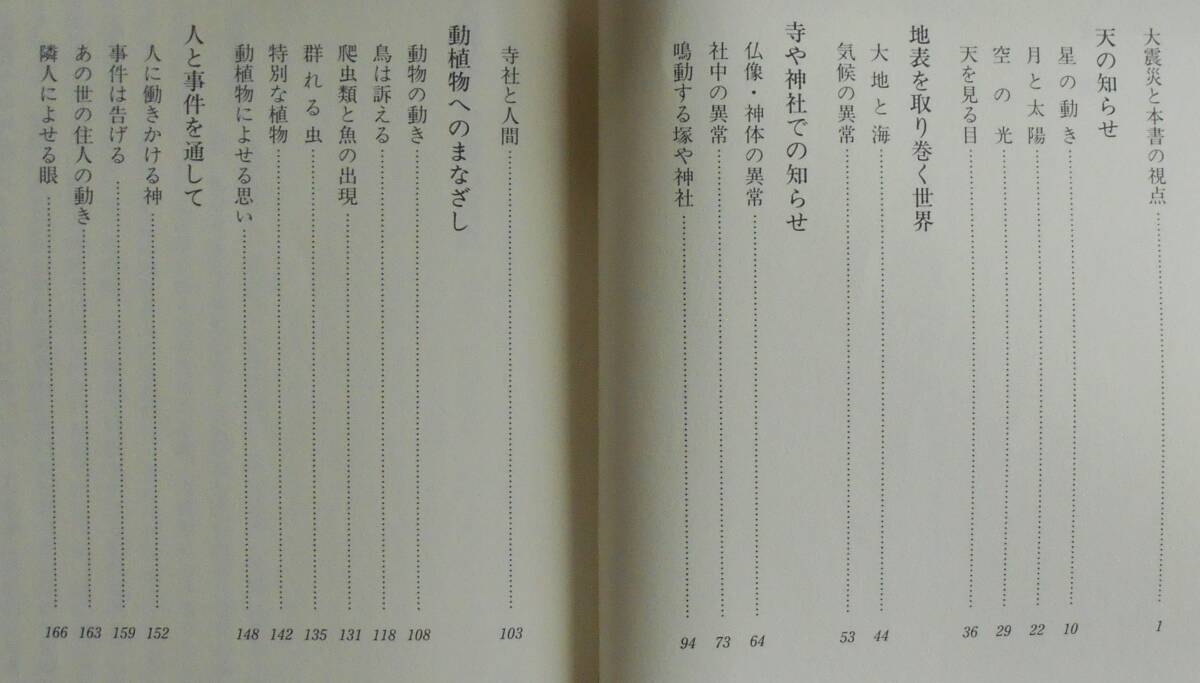 大震災と本書の視点……………………1
天の知らせ
星の動き……………………10
月と太陽……………………22
空の光……………………29
天を見る目……………………36
地表を取り巻く世界
大地と海……………………44
気候の異常……………………53
寺や神社での知らせ
仏像・神体の異常……………………64
社中の異常……………………73
鳴動する塚や神社……………………94
寺社と人間……………………103
動植物へのまなざし
動物の動き……………………108
鳥は訴える……………………118
爬虫類と魚の出現……………………131
群れる虫……………………135
特別な植物……………………142
動植物によせる思い……………………148
人と事件を通して
人に働きかける神……………………152
事件は告げる……………………159
あの世の住人の動き……………………163
隣人によせる眼……………………166